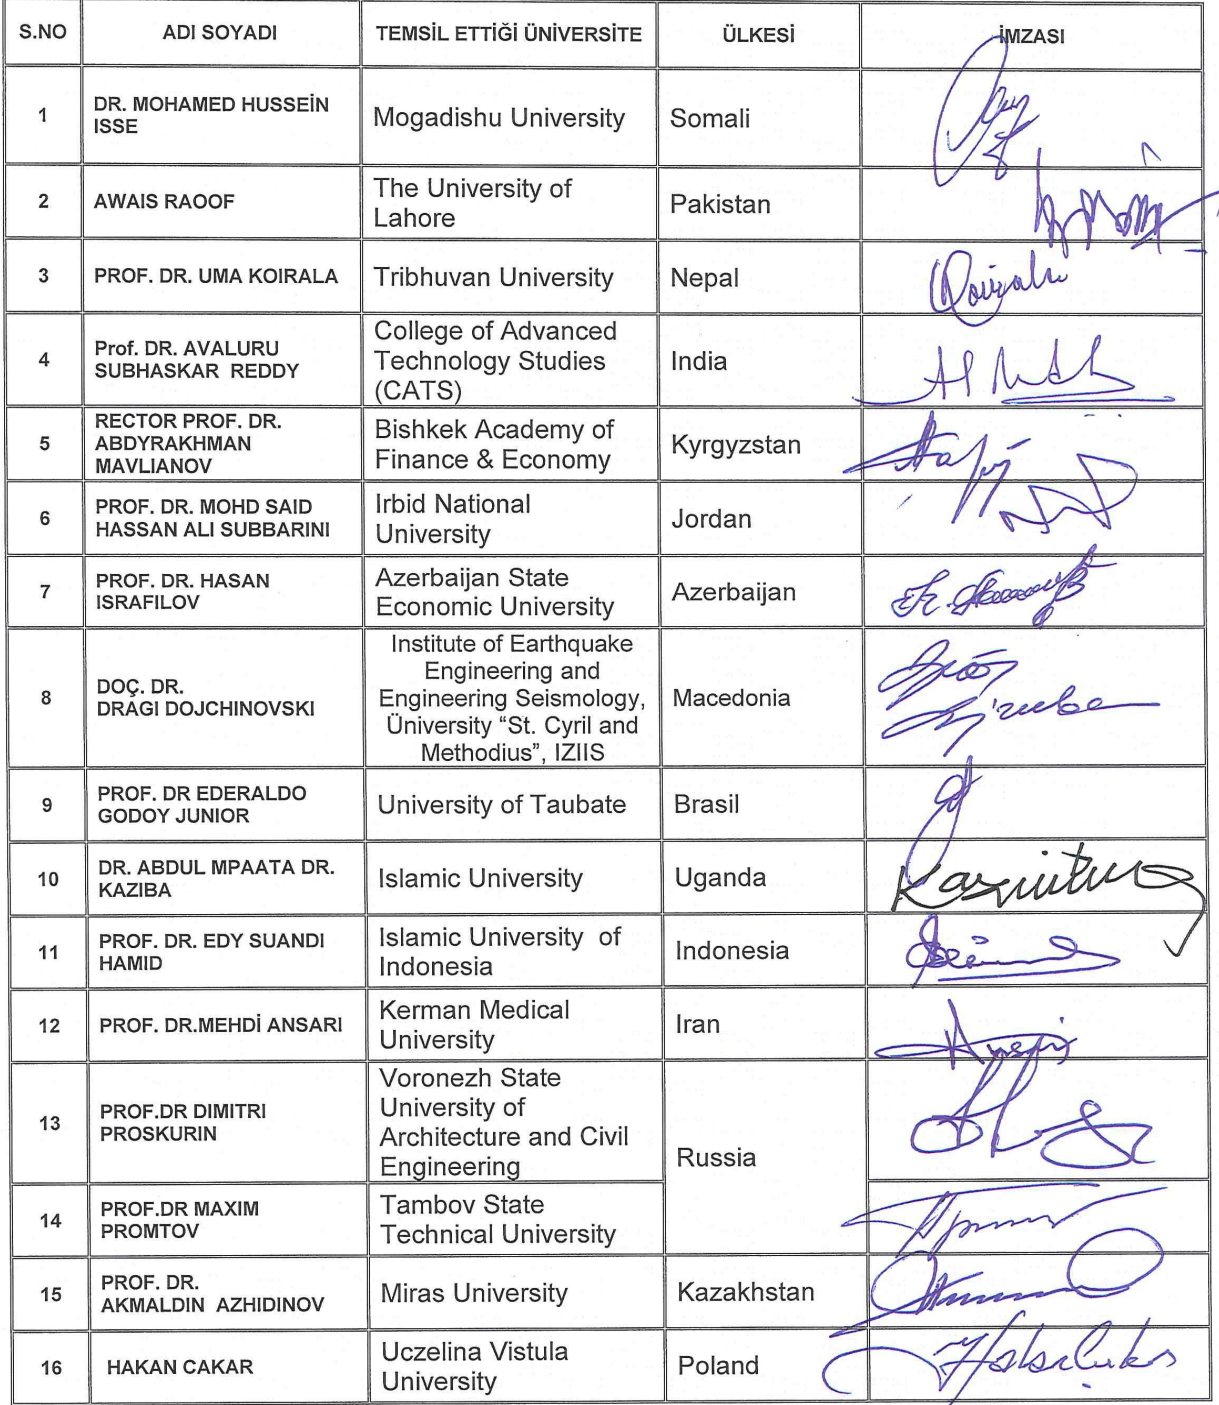 S.NO ADI SOYADI TEMSİL ETTİĞİ ÜNİVERSİTE ÜLKESİ İMZASI
1 DR. MOHAMED HUSSEİN ISSE Mogadishu University Somali
2 AWAIS RAOOF The University of Lahore Pakistan
3 PROF. DR. UMA KOIRALA Tribhuvan University Nepal
4 Prof. DR. AVALURU SUBHASKAR REDDY College of Advanced Technology Studies (CATS) India
5 RECTOR PROF. DR. ABDYRAKHMAN MAVLIANOV Bishkek Academy of Finance & Economy Kyrgyzstan
6 PROF. DR. MOHD SAID HASSAN ALI SUBBARINI Irbid National University Jordan
7 PROF. DR. HASAN ISRAFILOV Azerbaijan State Economic University Azerbaijan
8 DOÇ. DR. DRAGI DOJCHINOVSKI Institute of Earthquake Engineering and Engineering Seismology, Üniversity “St. Cyril and Methodius”, IZIIS Macedonia
9 PROF. DR EDERALDO GODOY JUNIOR University of Taubate Brasil
10 DR. ABDUL MPAATA DR. KAZIBA Islamic University Uganda
11 PROF. DR. EDY SUANDI HAMID Islamic University of Indonesia Indonesia
12 PROF. DR.MEHDİ ANSARI Kerman Medical University Iran
13 PROF.DR DIMITRI PROSKURIN Voronezh State University of Architecture and Civil Engineering Russia
14 PROF.DR MAXIM PROMTOV Tambov State Technical University
15 PROF. DR. AKMALDIN AZHIDINOV Miras University Kazakhstan
16 HAKAN CAKAR Uczelina Vistula University Poland